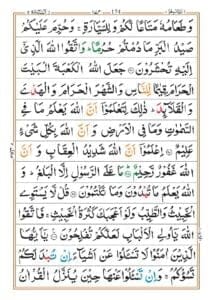 وَطَعَامُهٗ مَتَاعًا لَّكُمْ وَلِلسَّيَّارَةِ ۚ وَحُرِّمَ عَلَيْكُمْ
صَيْدُ الْبَرِّ مَا دُمْتُمْ حُرُمًا ؕ وَاتَّقُوا اللّٰهَ الَّذِيْٓ
اِلَيْهِ تُحْشَرُوْنَ ۝ جَعَلَ اللّٰهُ الْكَعْبَةَ الْبَيْتَ
الْحَرَامَ قِيٰمًا لِّلنَّاسِ وَالشَّهْرَ الْحَرَامَ وَالْهَدْيَ
وَالْقَلَآئِدَ ؕ ذٰلِكَ لِتَعْلَمُوْٓا اَنَّ اللّٰهَ يَعْلَمُ مَا فِي
السَّمٰوٰتِ وَمَا فِي الْاَرْضِ وَاَنَّ اللّٰهَ بِكُلِّ شَيْءٍ
عَلِيْمٌ ۝ اِعْلَمُوْٓا اَنَّ اللّٰهَ شَدِيْدُ الْعِقَابِ وَاَنَّ
اللّٰهَ غَفُوْرٌ رَّحِيْمٌ ۝ مَا عَلَى الرَّسُوْلِ اِلَّا الْبَلٰغُ ؕ وَ
اللّٰهُ يَعْلَمُ مَا تُبْدُوْنَ وَمَا تَكْتُمُوْنَ ۝ قُلْ لَّا يَسْتَوِي
الْخَبِيْثُ وَالطَّيِّبُ وَلَوْ اَعْجَبَكَ كَثْرَةُ الْخَبِيْثِ ۚ فَاتَّقُوا
اللّٰهَ يٰٓاُولِي الْاَلْبَابِ لَعَلَّكُمْ تُفْلِحُوْنَ ۝ يٰٓاَيُّهَا
الَّذِيْنَ اٰمَنُوْا لَا تَسْـَٔلُوْا عَنْ اَشْيَآءَ اِنْ تُبْدَ لَكُمْ
تَسُؤْكُمْ ۚ وَاِنْ تَسْـَٔلُوْا عَنْهَا حِيْنَ يُنَزَّلُ الْقُرْاٰنُ